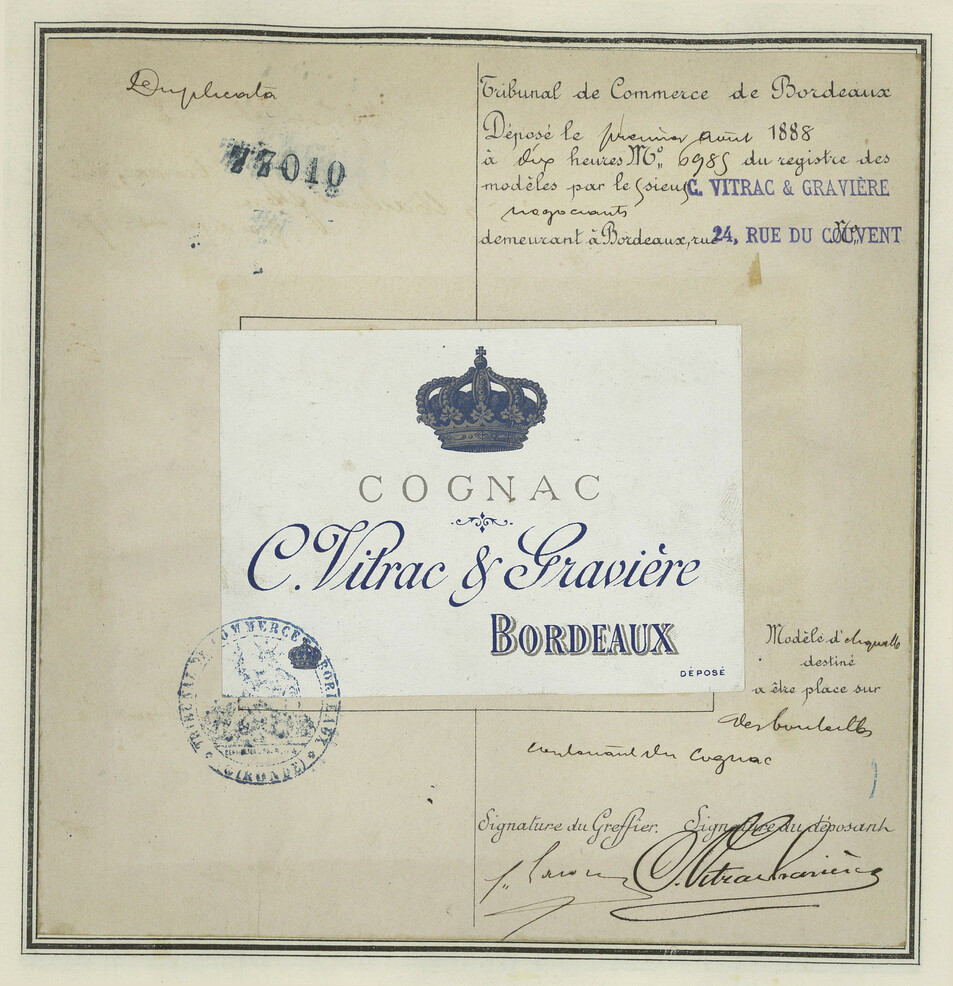 Duplicata
77010
Tribunal de Commerce de Bordeaux
Déposé le premier août 1888
à dix heures M. No 6985 du registre des
modèles par le sieurs C. VITRAC & GRAVIÈRE
négociants
demeurant à Bordeaux, rue 24, RUE DU COUVENT
COGNAC
C. Vitrac & Gravière
BORDEAUX
DÉPOSÉ
TRIBUNAL DE COMMERCE BORDEAUX
(GIRONDE)
Modèle d'etiquette
destiné
a être place sur
des bouteilles
contenant du Cognac
Signature du Greffier. Signature du déposant
C. Vitrac Gravière